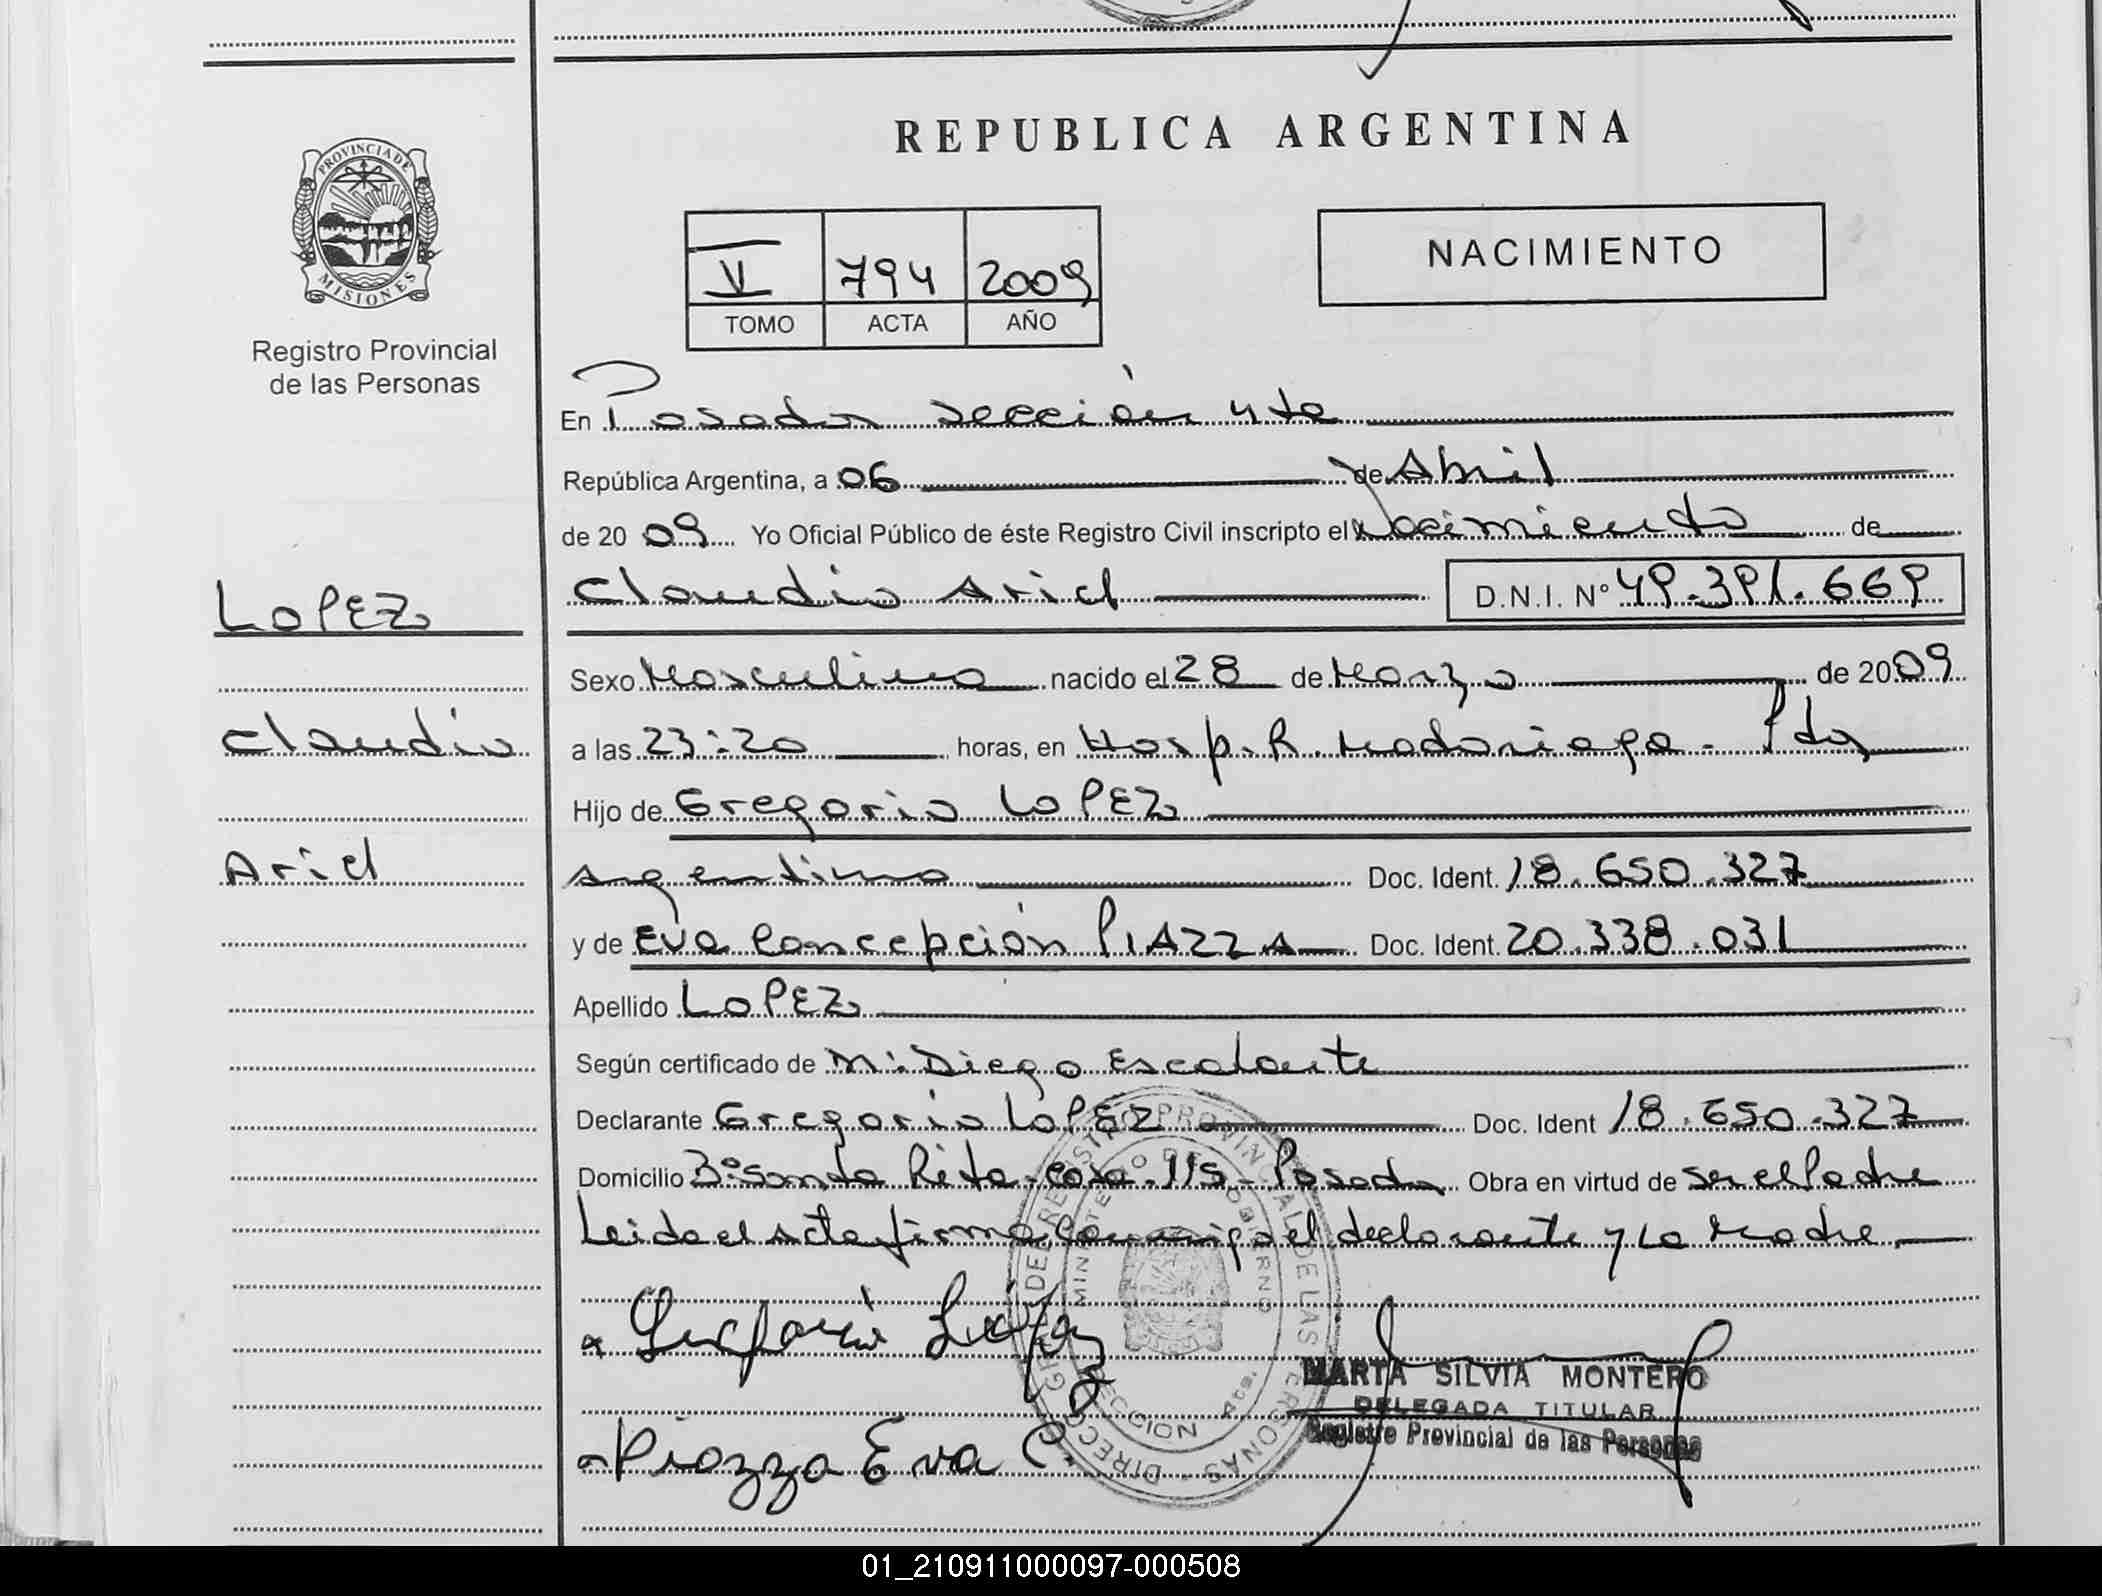 REPUBLICA ARGENTINA
PROVINCIA DE
MISIONES
Registro Provincial
de las Personas
V 794 2009
TOMO ACTA AÑO
NACIMIENTO
En Posadas sección 4ta
República Argentina, a 06 de Abril
de 2009 Yo Oficial Público de éste Registro Civil inscripto el Nacimiento de
Claudio Ariel D.N.I. Nº 49.391.669
LOPEZ
Claudio
Ariel
Sexo Masculino nacido el 28 de Marzo de 2009
a las 23:20 horas, en Hosp. R. Madariaga - Pdas
Hijo de Gregorio LOPEZ
Argentino Doc. Ident. 18.650.327
y de Eva Concepción PIAZZA Doc. Ident. 20.338.031
Apellido LOPEZ
Según certificado de M: Diego Escalante
Declarante Gregorio LOPEZ Doc. Ident 18.650.327
Domicilio Bº Santa Rita - casa - 115 - Posadas Obra en virtud de ser el Padre
Leida el Acta firma conmigo el declarante y la Madre
Gregorio López
Piazza Eva C.
MARTA SILVIA MONTERO
DELEGADA TITULAR
Registro Provincial de las Personas
01_210911000097-000508